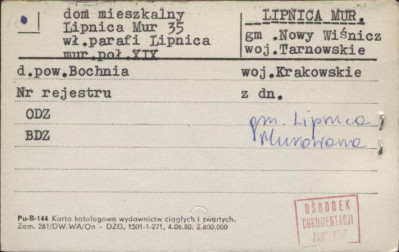 dom mieszkalny
Lipnica Mur 35
wł.parafi Lipnica
mur.poł.XIX
LIPNICA MUR.
gm .Nowy Wiśnicz
woj.Tarnowskie
d.pow.Bochnia
woj.Krakowskie
Nr rejestru
z dn.
ODZ
BDZ
gm. Lipnica
Murowana
Pu-B-144 Karta katalogowa wydawnictw ciągłych i zwartych.
Zam. 261/DW-WA/On - DZG, 1501-1-271, 4.06.80. 2.600.000
OŚRODEK
DOKUMENTACJI
ZABYTKÓW